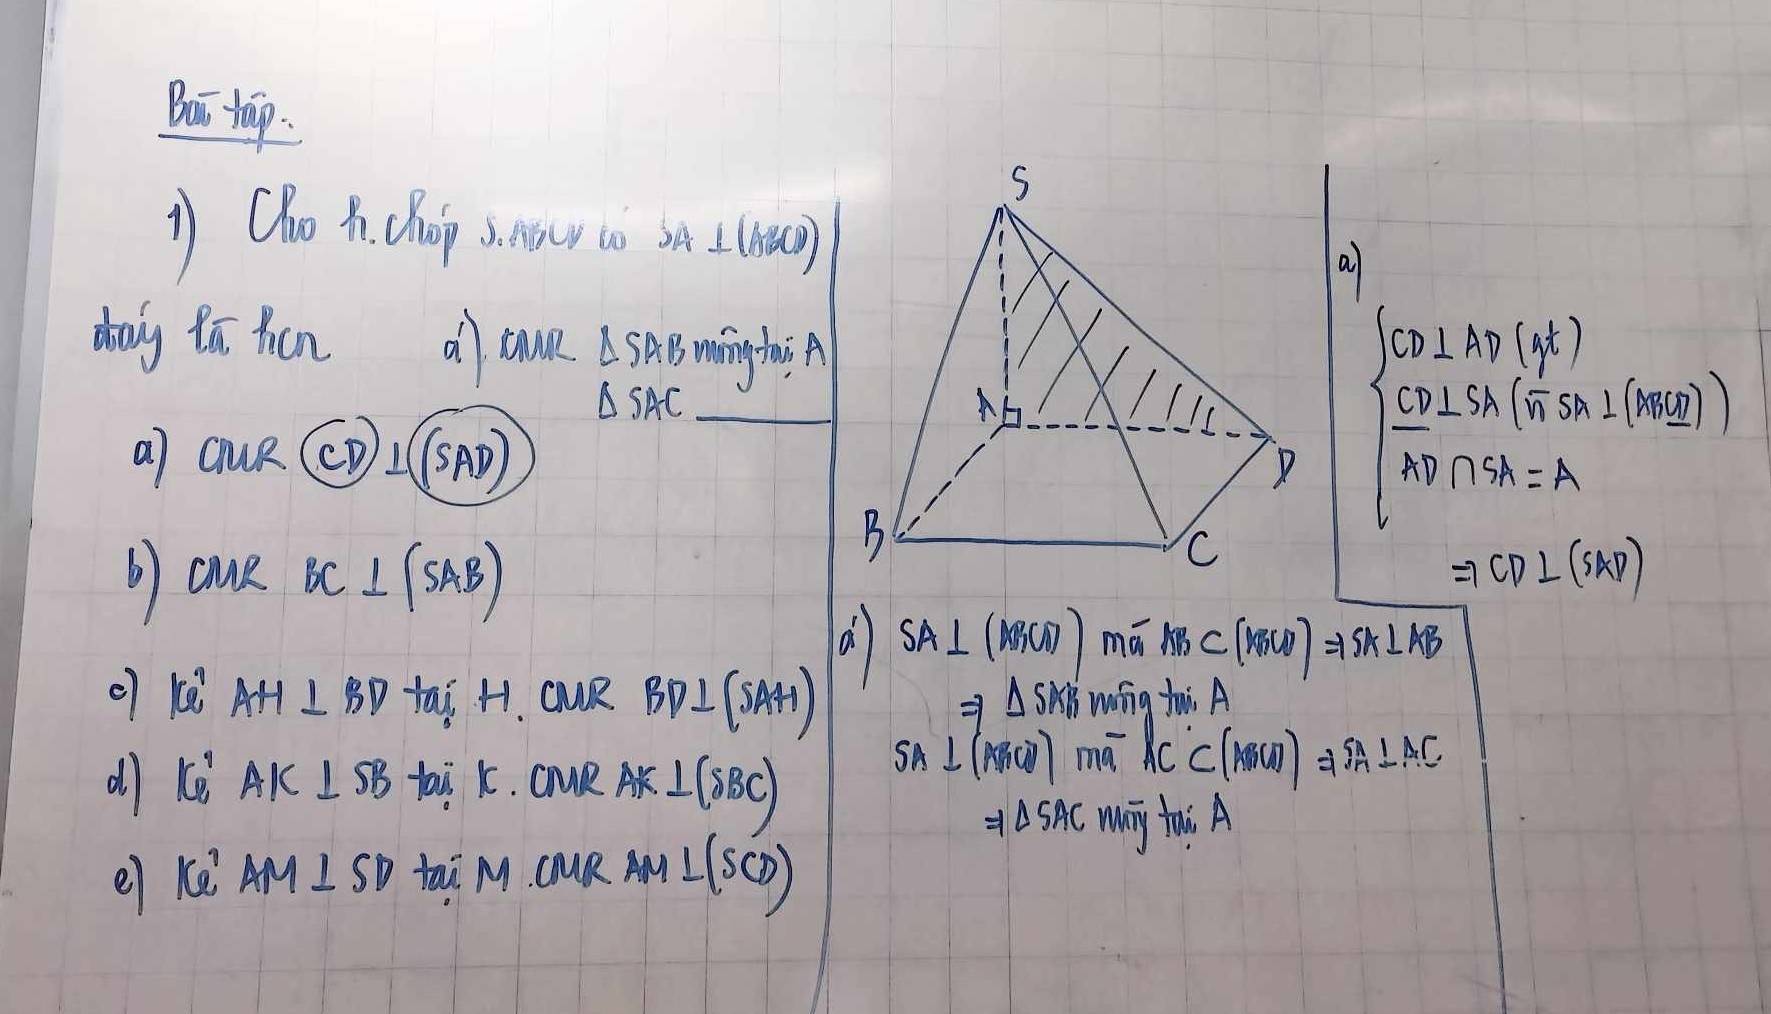 Bài tập:
1) Cho h.chóp S.ABCD có SA ⊥ (ABCD)
đáy là hcn
a') CMR ΔSAB vuông tại A
ΔSAC ______
a) CMR CD ⊥ (SAD)
b) CMR BC ⊥ (SAB)
c) Kẻ AH ⊥ BD tại H. CMR BD ⊥ (SAH)
d) Kẻ AK ⊥ SB tại K. CMR AK ⊥ (SBC)
e) Kẻ AM ⊥ SD tại M. CMR AM ⊥ (SCD)
S
A
D
B
C
a') SA ⊥ (ABCD) mà AB ⊂ (ABCD) ⇒ SA ⊥ AB
⇒ ΔSAB vuông tại A
SA ⊥ (ABCD) mà AC ⊂ (ABCD) ⇒ SA ⊥ AC
⇒ ΔSAC vuông tại A
a)
CD ⊥ AD (gt)
CD ⊥ SA (vì SA ⊥ (ABCD))
AD ∩ SA = A
⇒ CD ⊥ (SAD)